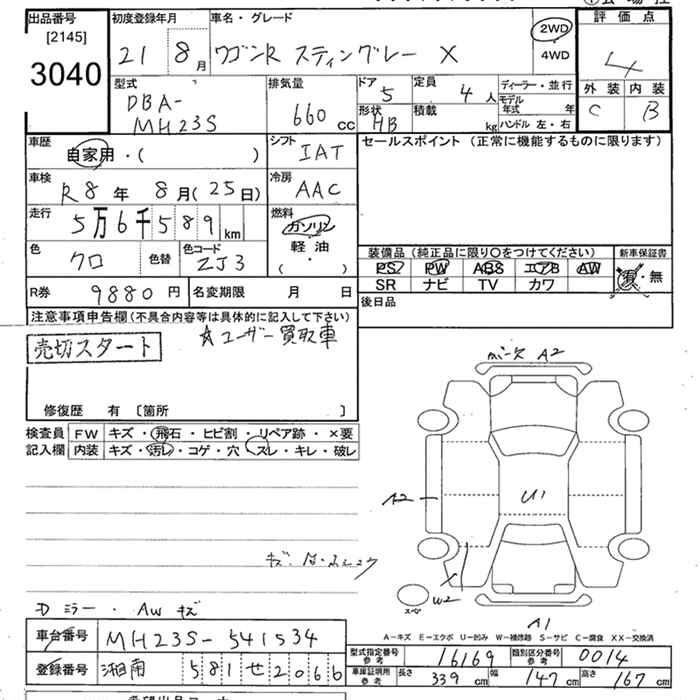 出品番号
[2145]
3040
初度登録年月
21 8月
車名・グレード
ワゴンR スティングレー X
2WD
4WD
評価点
4
型式
DBA-
MH23S
排気量
660 cc
ドア
5
定員
4人
形状
HB
積載
kg
ディーラー・並行
モデル年式 年
ハンドル 左・右
外装 内装
C B
車歴
自家用・( )
シフト
IAT
セールスポイント (正常に機能するものに限ります)
車検
R8年 8月(25日)
冷房
AAC
走行
5万6千589km
燃料
ガソリン
軽・油
( ・ )
色
クロ
色替
色コード
ZJ3
装備品 (純正品に限り○をつけてください)
新車保証書
PS PW ABS エアB AW
SR ナビ TV カワ
有・無
R券
9880円
名変期限 月 日
後日品
注意事項申告欄(不具合内容等は具体的に記入して下さい)
売切スタート
☆ユーザー買取車
修復歴 有 〔箇所 〕
検査員
記入欄
FW キズ・飛石・ヒビ割・リペア跡・×要
内装 キズ・汚レ・コゲ・穴 スレ・キレ・破レ
A2
A2
U1
W2
スペア
A1
Dミラー・AWキズ
A-キズ E-エクボ U-凹み W-補修跡 S-サビ C-腐食 XX-交換済
車台番号
MH23S-541534
登録番号
湘南 581 せ 2066
型式指定番号
参考
16169
類別区分番号
参考
0014
車庫証明用
参考
長さ 339cm 幅 147cm 高さ 167cm